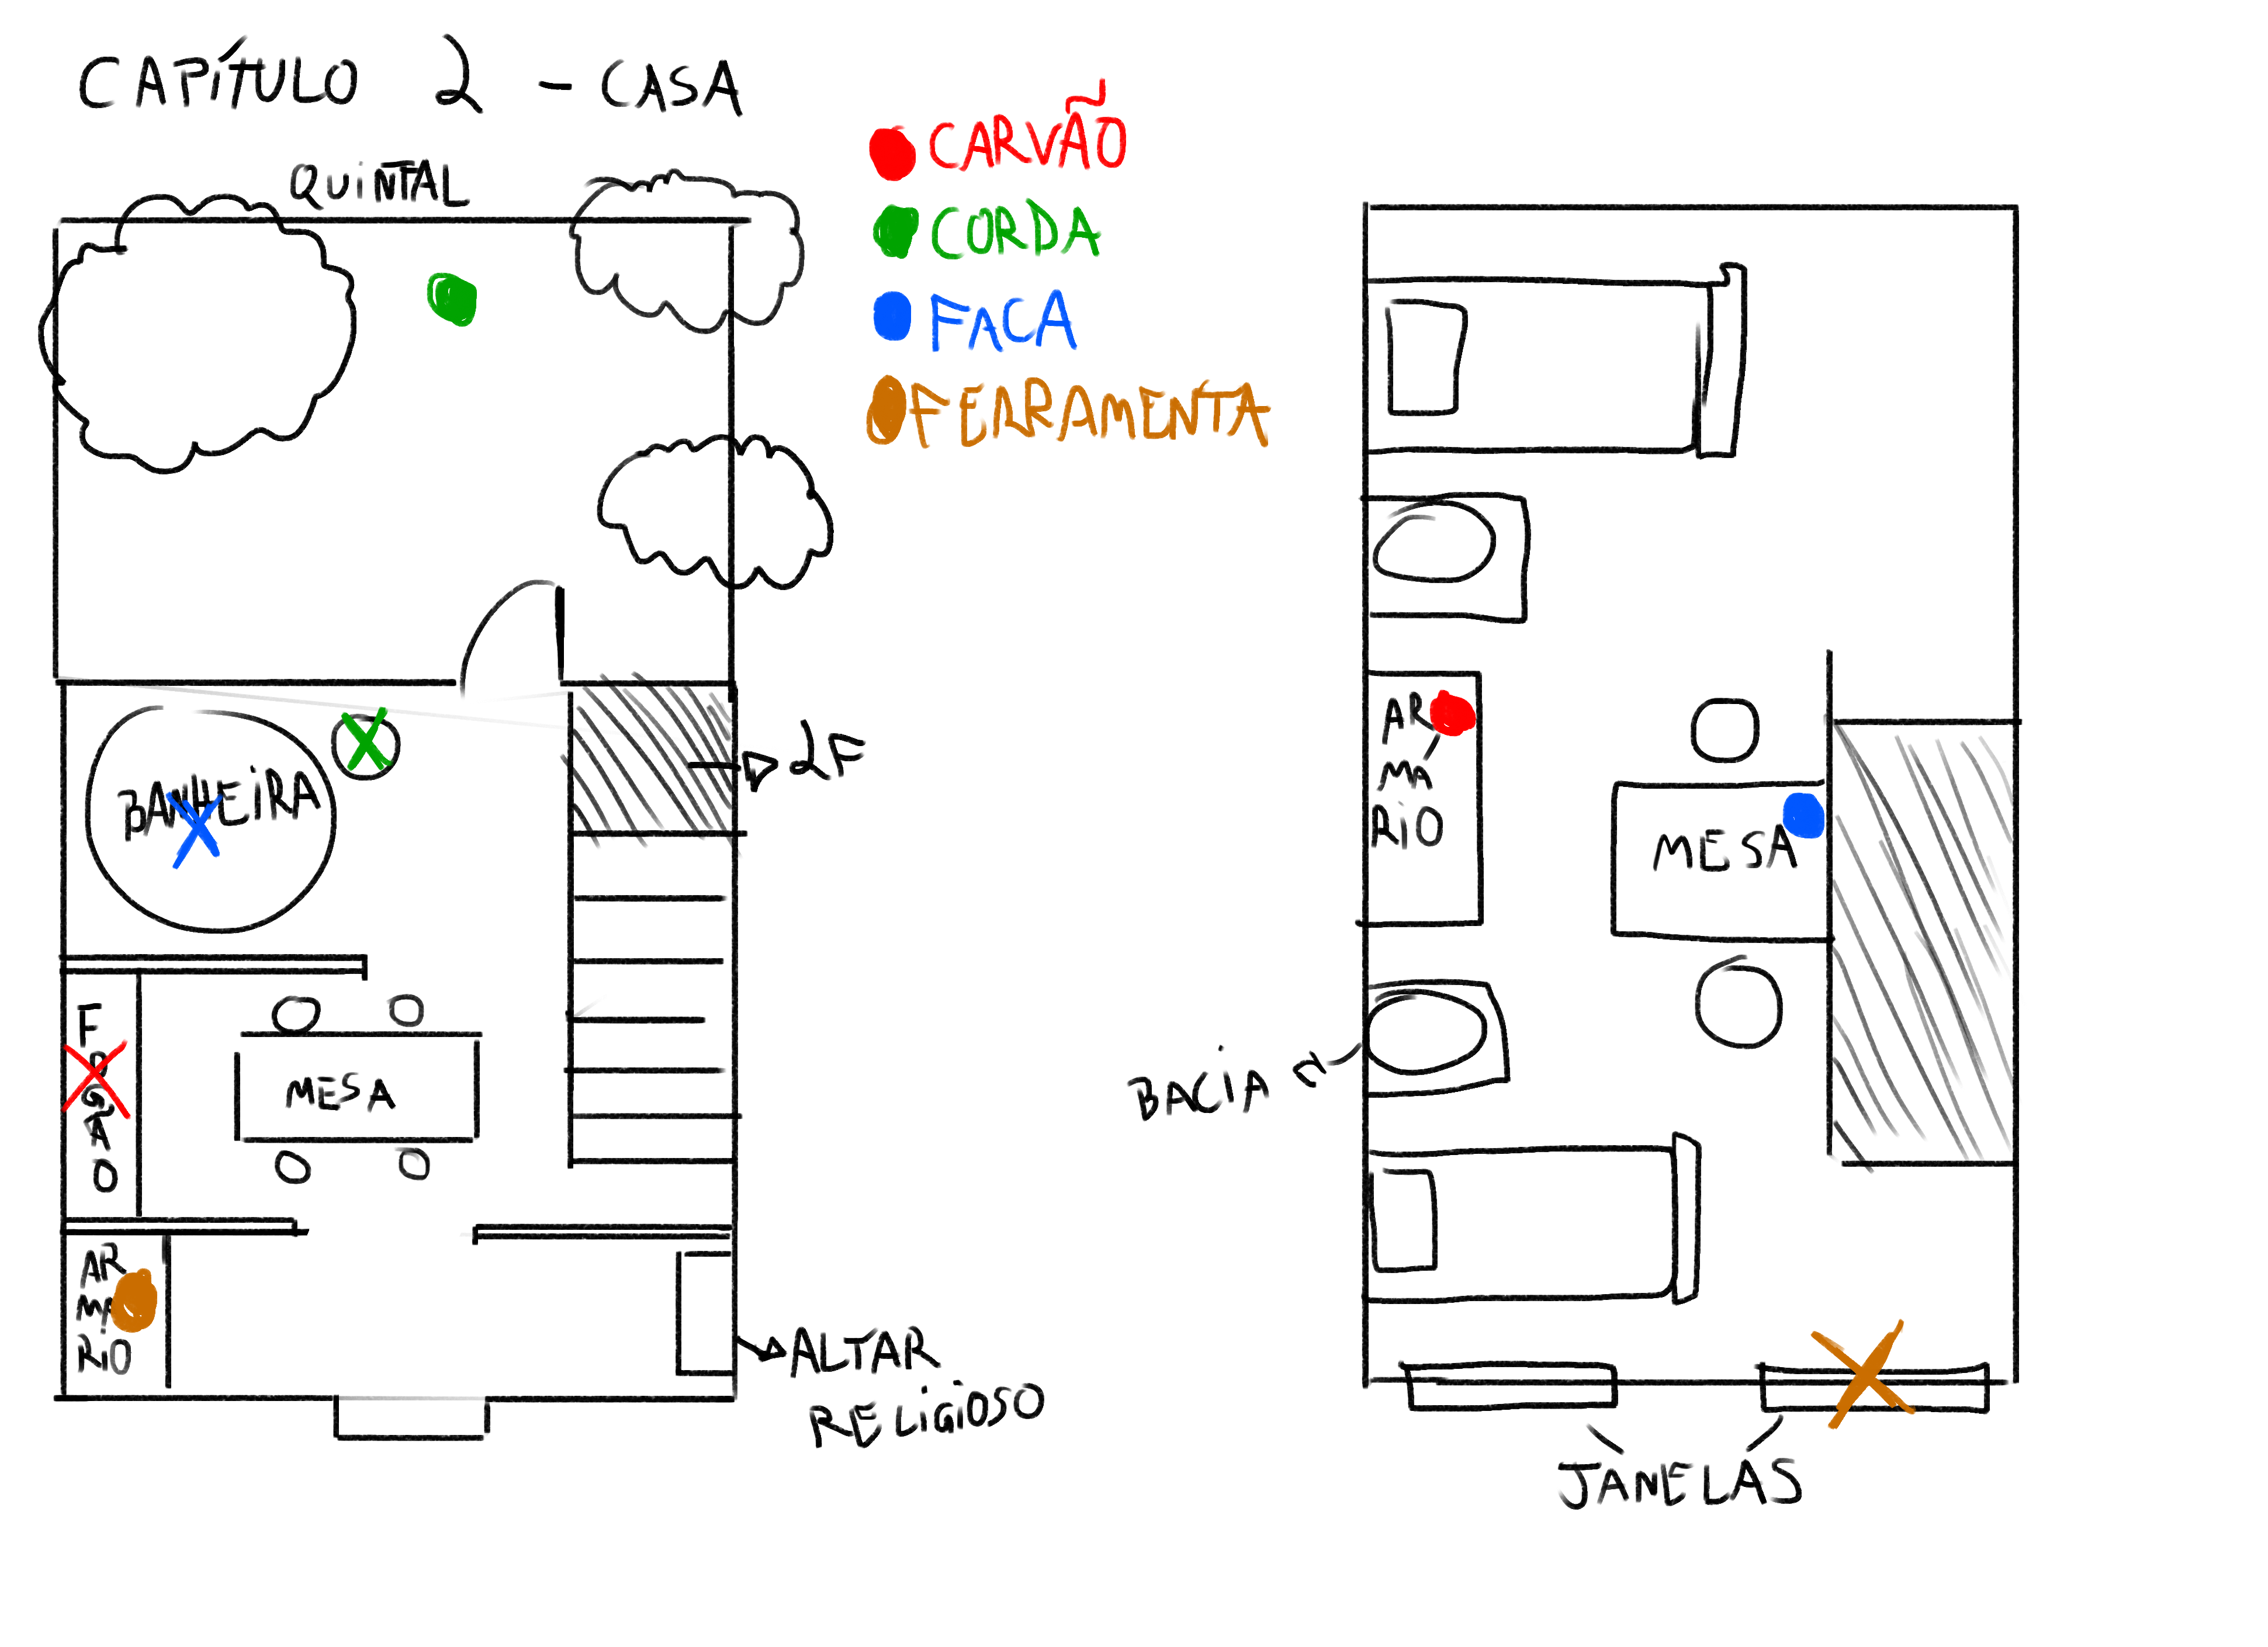 CAPÍTULO 2 - CASA
QUINTAL
CARVÃO
CORDA
FACA
FERRAMENTA
2F
BANHEIRA
FOGÃO
MESA
AR
MA
RIO
ALTAR
RELIGIOSO
AR
MÁ
RIO
MESA
BACIA
JANELAS